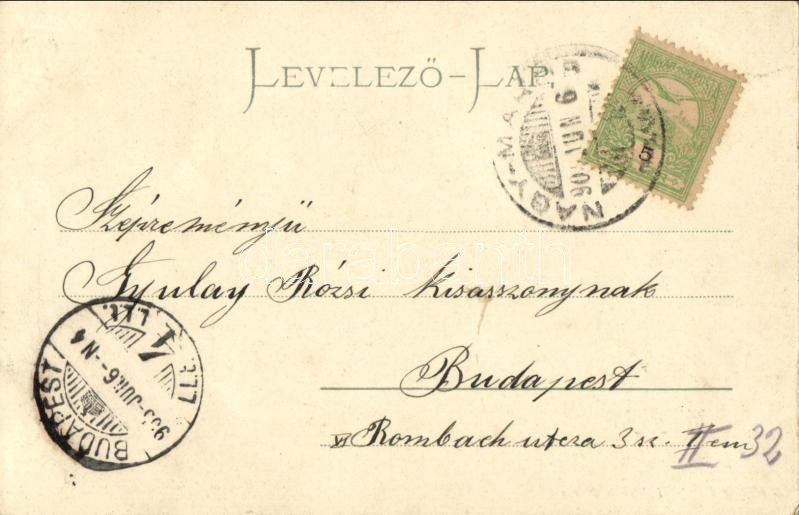 LEVELEZŐ-LAP.
NAGY-MA
906 JUN 6
5
Szépreményü
Gyulay Rózsi Kisasszonynak
Budapest
VI Rombach utcza 3 sz. I em
II 32
BUDAPEST
905 JUN. 6-N4
darabanth